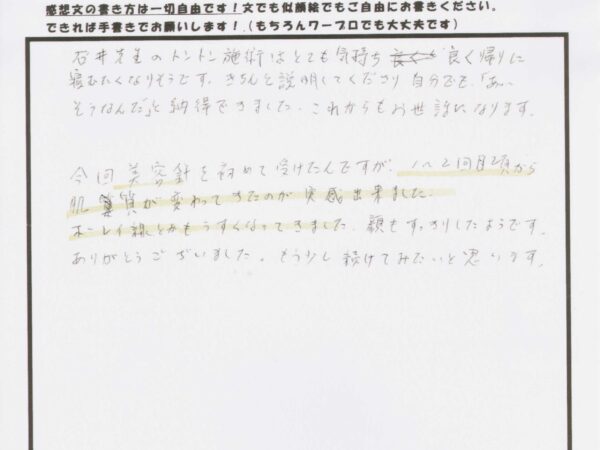 感想文の書き方は一切自由です！文でも似顔絵でもご自由にお書きください。
できれば手書きでお願いします！（もちろんワープロでも大丈夫です）
石井先生のトントン施術はとても気持ち良く帰りに
寝むたくなりそうです。きちんと説明してくださり自分でも、「あ〜
そうなんだ」と納得できました。これからもお世話になります。
今回美容針を初めて受けたんですが、1〜2回目頃から
肌質が変わってきたのが実感出来ました。
ホーレイ線とかもうすくなってきました。顔もすっきりしたようです。
ありがとうございました。もう少し続けてみたいと思います。